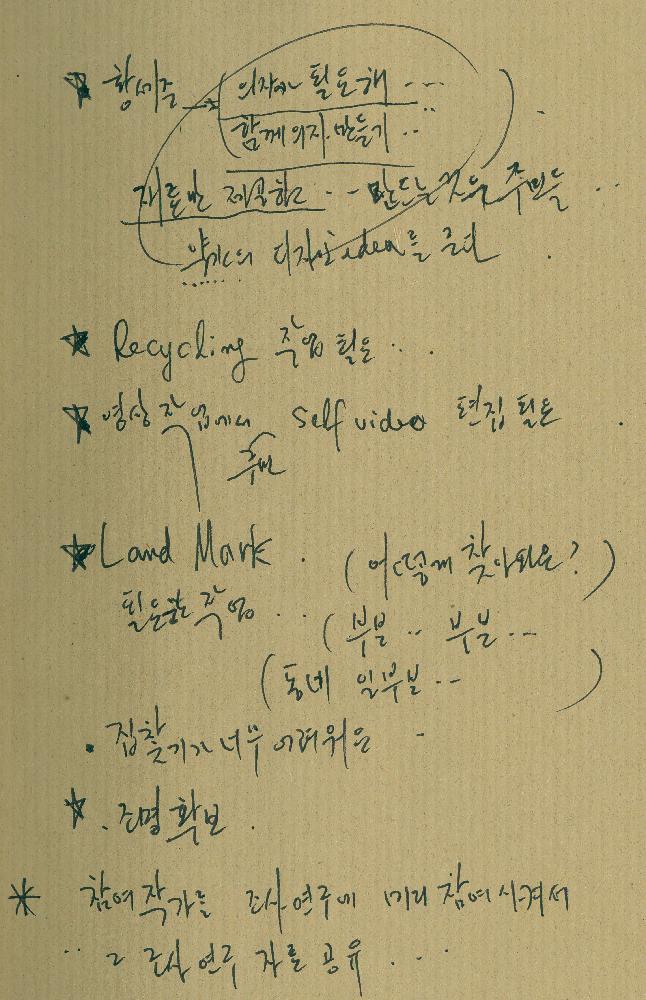 ★ 황세준 → (의자가 필요해 ....
(함께 의자 만들기 ..)
재료만 제공하고 .. 만드는 것은 주민들 ..
약간의 디자인 idea를 준다 .
★ Recycling 작업 필요 ...
★ 영상 작업에서 Self video 편집 필요 .
주민
★ Land Mark . (어떻게 찾아와요?)
필요한 작업 ... (부분 .. 부분 ...
(동네 일부분 ..)
. 집찾기가 너무 어려워요 -
★ . 조명 확보 .
* 참여작가를 조사연구에 미리 참여시켜서
.. 그 조사연구 자료 공유 ....